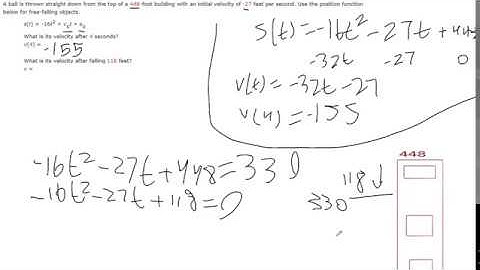 A ball is thrown straight down from the top of a 448 foot building with an initial velocity of -27 feet per second. Use the position function
below for free-falling objects.
s(t) = -16t² + v₀t + s₀
What is its velocity after 4 seconds?
v(4) = -155
What is its velocity after falling 118 feet?
v =
s(t) = -16t² - 27t + 448
-32t -27 0
v(t) = -32t - 27
v(4) = -155
-16t² - 27t + 448 = 330
-16t² - 27t + 118 = 0
448
118 ↓
330